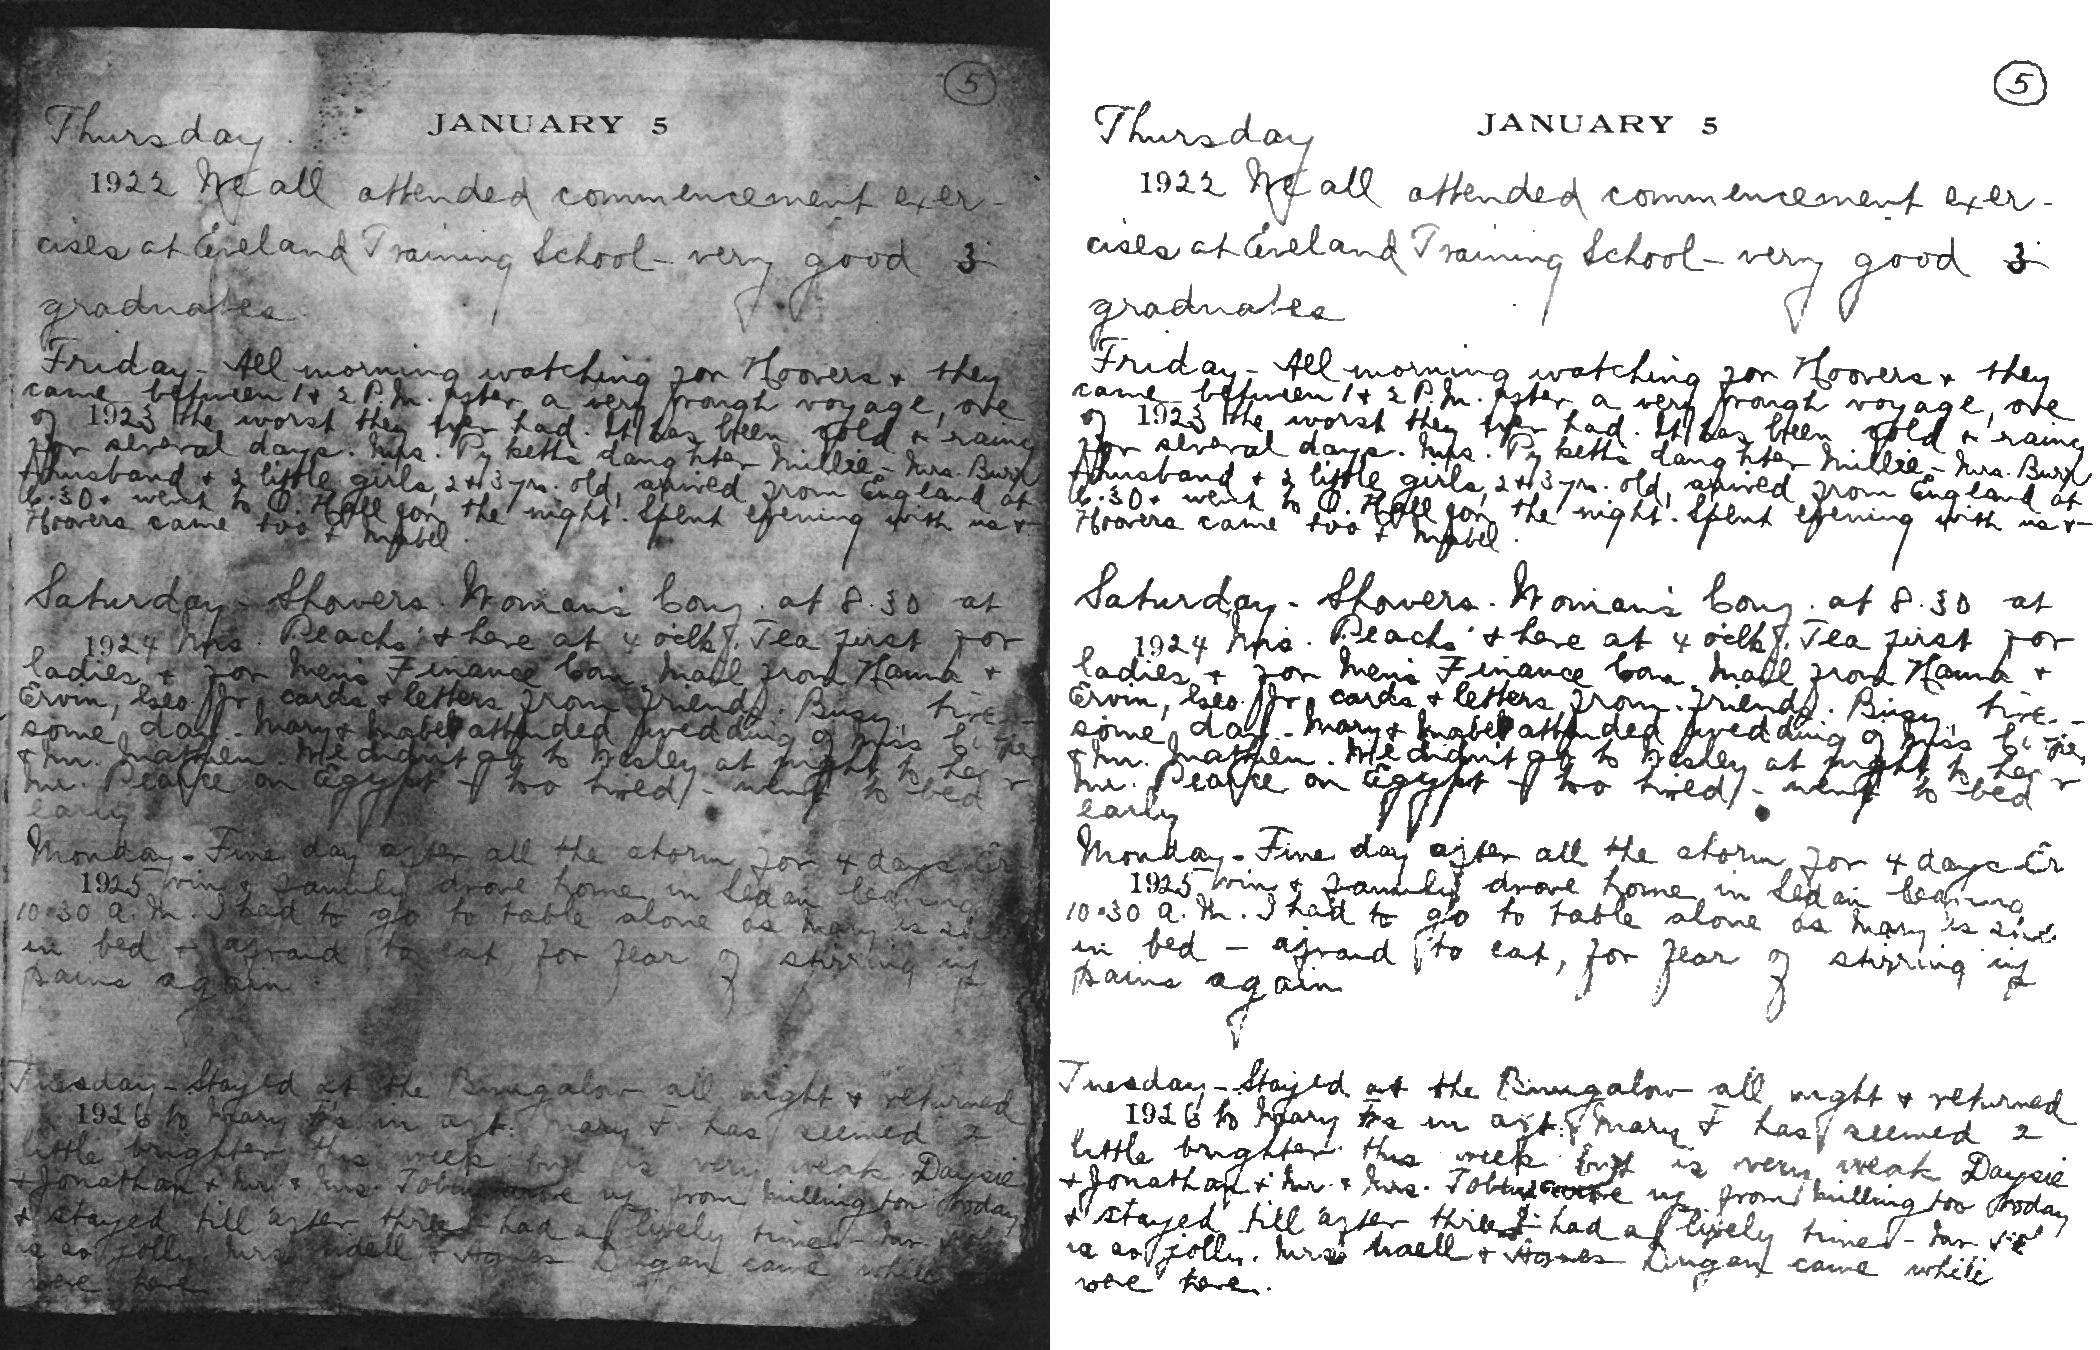 5
JANUARY 5
Thursday
1922 We all attended commencement exer-
cises at Eveland Training School - very good 3
graduates
Friday - All morning watching for Hoovers + they
came between 1 + 2 P.M. after a very rough voyage, one
of 1923 the worst they ever had. It has been cold + rainy
for several days. Mrs. Pyketts daughter Millie - Mrs. Burr
husband + 2 little girls, 2 + 3 yrs. old, arrived from England at
6.30 + went to O. Hall for the night. Spent evening with us +
Hoovers came too + Mabel.
Saturday - Showers. Woman's Conf. at 8.30 at
1924 Mrs. Peachs' + here at 4 o'clk. Tea first for
ladies + for Men's Finance Com. Mail from Hanna +
Ervin, Geo. Jr cards + letters from friends. Busy, tire-
some day - Mary + Mabel attended wedding of Miss
+ Mr. Mathew. We didn't go to Wesley at night to hear
Mr. Pearce on Egypt - too tired - went to bed
early
Monday - Fine day after all the storm for 4 days Er
1925 vin + family drove home in Sedan leaving
10.30 A.M. I had to go to table alone as Mary is still
in bed - afraid to eat, for fear of stirring up
pains again
Tuesday - Stayed at the Bungalow all night + returned
1926 to Mary F's in aft. Mary F has seemed a
little brighter this week but is very weak Daysie
+ Jonathan + Mr. + Mrs. Tobin came up from Millington today
+ stayed till after three - had a lively time - Mr.
is so jolly. Mrs. + Agnes Dugan came while
were here.